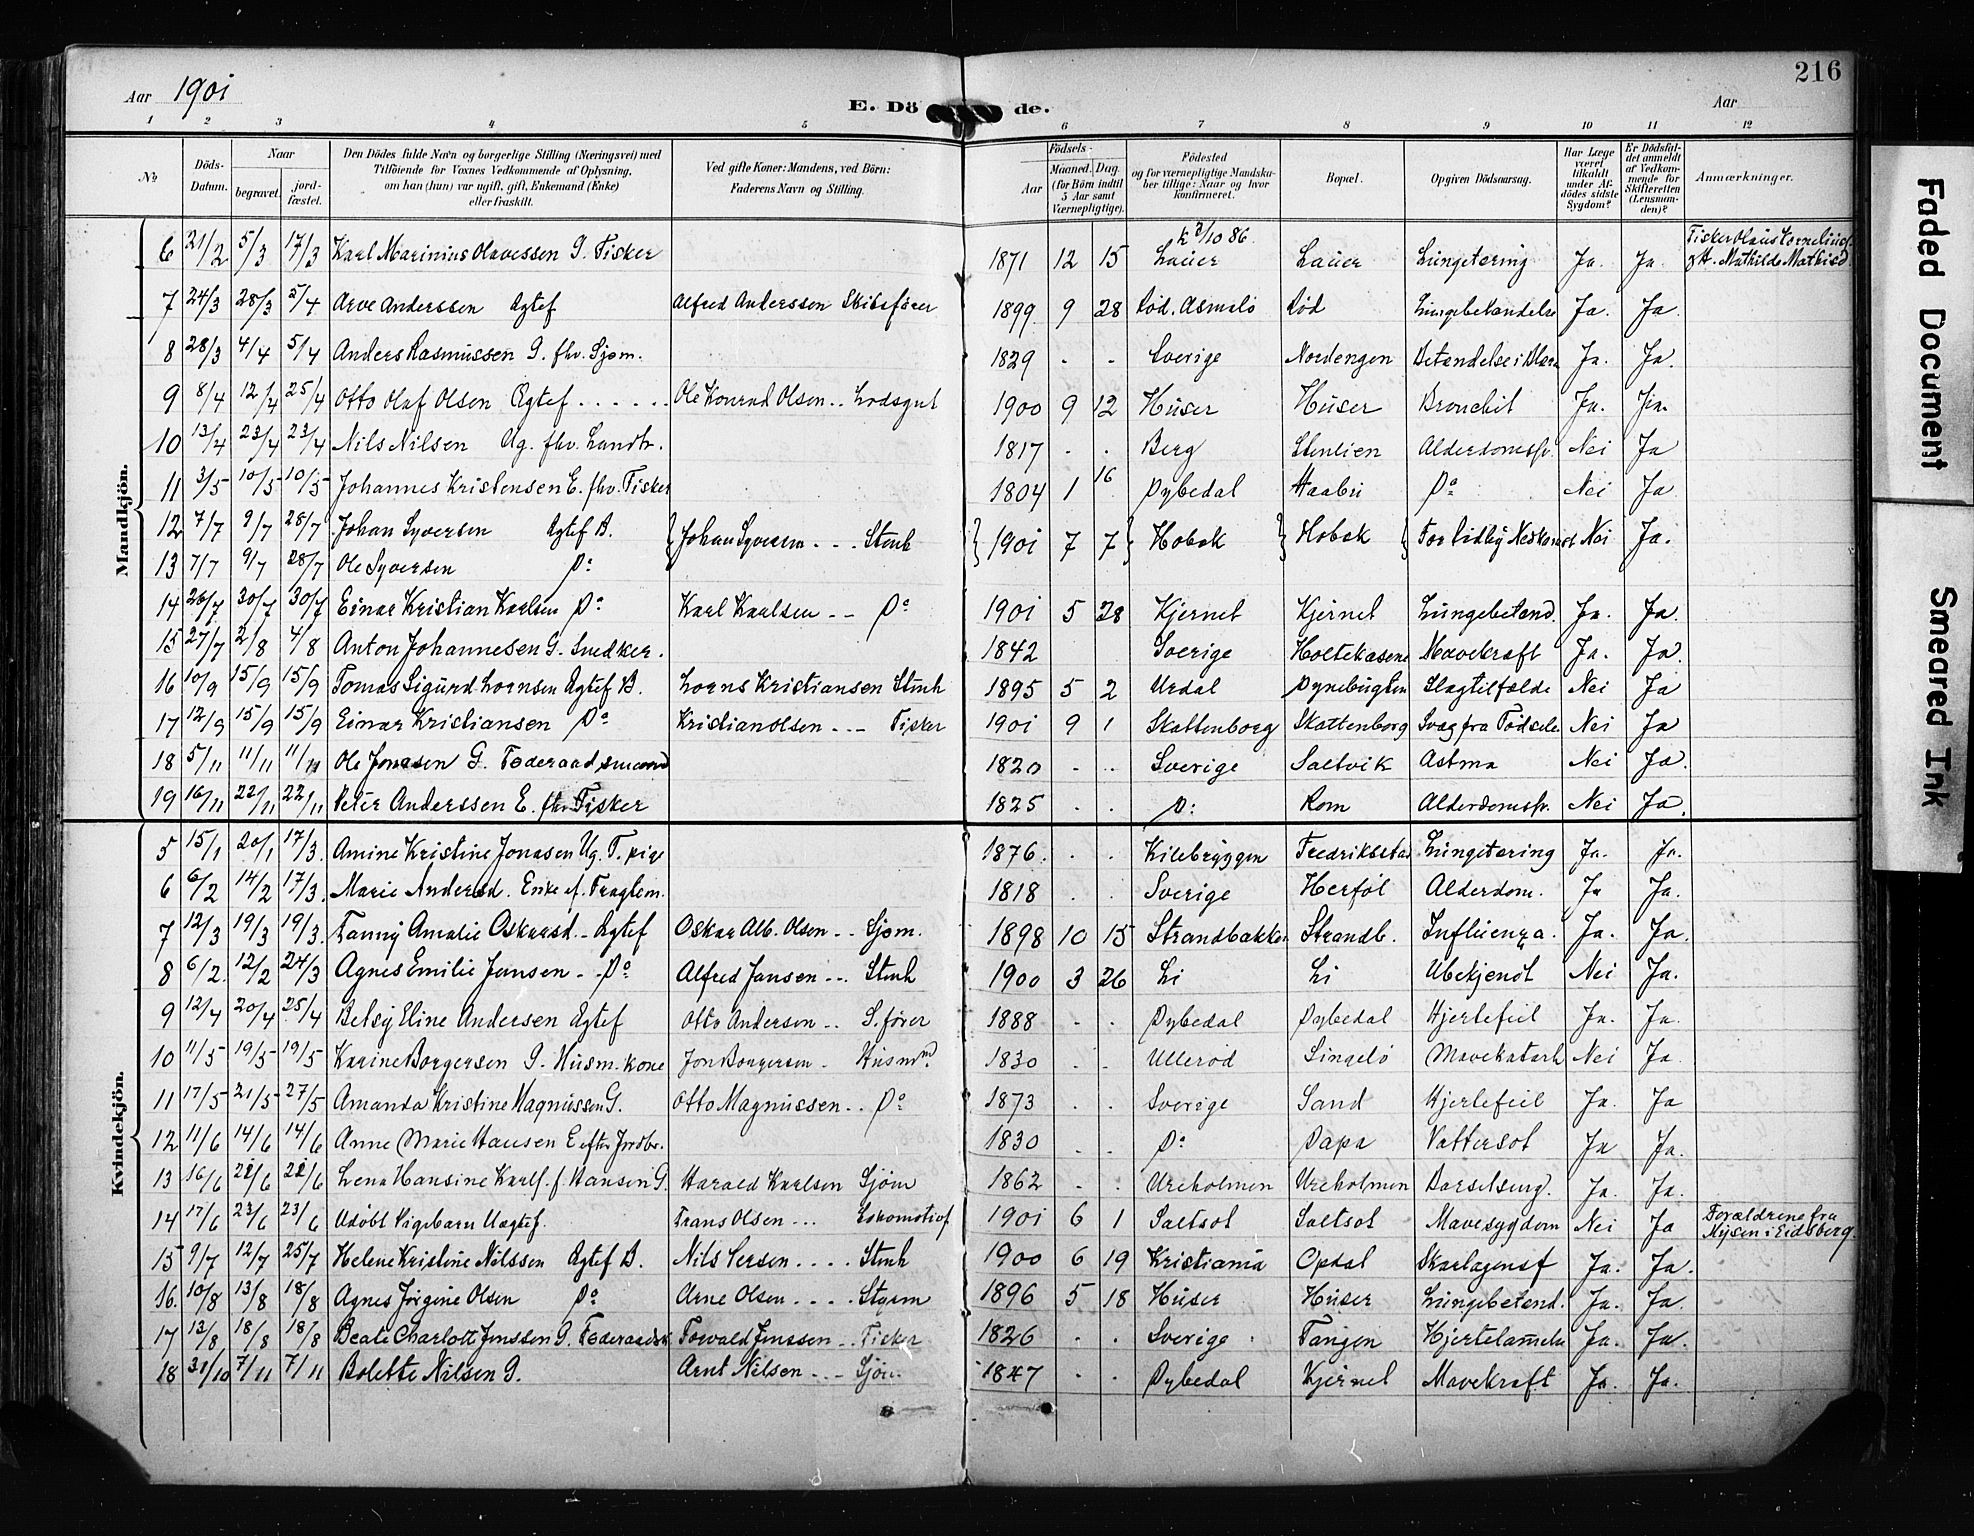 216
Aar 1901
E. Dö de.
Aar
1 2 3 4 5 6 7 8 9 10 11 12
№
Döds-Datum.
Naar begravet. jord-fæstet.
Den Dödes fulde Navn og borgerlige Stilling (Næringsvei) med Tilföiende for Voxnes Vedkommende af Oplysning, om han (hun) var ugift, gift, Enkemand (Enke) eller fraskilt.
Ved gifte Koner: Mandens, ved Börn: Faderens Navn og Stilling.
Födsels- Aar Maaned. Dag. (for Börn indtil 5 Aar samt Værnepligtige).
Födested og for værnepligtige Mandskaber tillige: Naar og hvor konfirmeret.
Bopæl.
Opgiven Dödsaarsag.
Har Læge været tilkaldt under Afdödes sidste Sygdom?
Er Dödsfaldet anmeldt af Vedkommende for Skifteretten (Lensmanden)?
Anmærkninger.
Mandkjön.
6 21/2 5/3 17/3 Karl Marinius Olavessen G. Fisker 1871 12 15 Lauer Lauer Lungetæring Ja. Ja.
7 24/3 28/3 5/4 Arve Anderssen Ægtef Alfred Anderssen Skibsfører 1899 9 28 Rød. Asmalø Rød Lungebetændelse Ja. Ja
8 28/3 4/4 5/4 Anders Rasmussen G. fhv. Sjøm. 1829 - - Sverige Nordengen Ja. Ja.
9 8/4 12/4 25/4 Otto Olaf Olsen Ægtef Ole Konrad Olsen Lodsgut 1900 9 12 Huser Huser Bronchit Ja. Ja.
10 13/4 23/4 23/4 Nils Nilsen Ug. fhv. Landbr. 1817 - - Berg Stenlien Alderdomssv. Nei Ja
11 3/5 10/5 10/5 Johannes Kristensen E. fhv. Fisker 1804 1 16 Dybedal Haabu Do Nei Ja
12 7/7 9/7 28/7 Johan Syversen Ægtef B. Johan Syversen Stenh 1901 7 7 Hobæk Hobæk For tidlig Nedkomst Nei Ja.
13 7/7 9/7 28/7 Ole Syversen Do
14 26/7 30/7 30/7 Einar Kristian Karlsen Do Karl Karlsen Do 1901 5 28 Kjernet Kjernet Lungebetænd. Ja. Ja.
15 27/7 2/8 4/8 Anton Johannesen G. Snedker. 1842 Sverige Holtekasene Mavekræft Ja. Ja.
16 10/9 15/9 15/9 Tomas Sigurd Lornsen Ægtef B. Lorns Kristiansen Stenh 1895 5 2 Urdal Dynebugten Slagtilfælde Nei Ja
17 12/9 15/9 15/9 Einar Kristiansen Do Kristian Olsen Fisker 1901 9 1 Skattenborg Skattenborg Svag fra Fødsele Nei Ja
18 5/11 11/11 11/11 Ole Jonasen G. Føderaadsmand 1820 - - Sverige Saltvik Astma Nei Ja.
19 16/11 22/11 22/11 Peter Anderssen E. fhv. Fisker 1825 - - Do Rom Alderdomssv. Nei Ja.
Kvindekjön.
5 15/1 20/1 17/3 Amine Kristine Jonasen Ug. T. pige 1876. - - Kilebryggen Fredrikstad Lungetæring Ja. Ja.
6 6/2 14/2 17/3 Marie Andersd. Enke ef. Fragtem. 1818 - - Sverige Herføl Alderdom. Ja Ja.
7 12/3 19/3 19/3 Fanny Amalie Oskarsd. Ægtef Oskar Alb. Olsen Sjøm. 1898 10 15 Strandbakken Strandb. Influenza. Ja. Ja.
8 6/2 12/2 24/3 Agnes Emilie Jansen Do Alfred Jansen Stenh 1900 3 26 Li Li Ubekjendt Nei Ja.
9 12/4 20/4 25/4 Betsy Eline Andersen Ægtef Otto Andersen S. fører 1888 - - Dybedal Dybedal Hjertefeil Ja. Ja.
10 11/5 19/5 19/5 Karine Borgersen G. Husm. kone Jon Borgersen Husmd. 1830 - - Ullerød Singelø Mavekatarh Nei Ja.
11 17/5 21/5 27/5 Amanda Kristine Magnussen G. Otto Magnussen Do 1873 - - Sverige Sand Hjertefeil Ja. Ja
12 11/6 14/6 14/6 Anne Marie Hansen E efter Jordbr. 1830 - - Do Papa Vattersot Ja Ja.
13 16/6 21/6 21/6 Lena Hansine Karls. f. Hansen G. Harald Karlsen Sjøm 1862 - - Ureholmen Ureholmen Barselseng. Ja. Ja.
14 17/6 23/6 23/6 Udøbt Pigebarn Uægtef. Frans Olsen Lokomotivf 1901 6 1 Saltsot Saltsot Mavesygdom Nei Ja Forældrene fra Mysen i Eidsberg.
15 9/7 12/7 25/7 Helene Kristine Nilssen Ægtef B. Nils Stenh 1900 6 19 Kristiania Opdal Skarlagensf Ja. Ja.
16. 10/8 13/8 18/8 Agnes Jørgine Olsen Do Arne Olsen 1896 5 18 Huser Huser Lungebetænd. Ja. Ja.
17 13/8 18/8 18/8 Beate Charlott Jenssen G. Føderaadsk Torvald Jenssen Fisker 1826 - - Sverige Tangen Hjertelammelse Ja. Ja.
18 31/10 7/11 7/11 Bolette Nilsen G. Arnt Nilsen Sjøm. 1847 - - Dybedal Kjernet Mavekræft Ja. Ja.
Faded Document
Smeared Ink